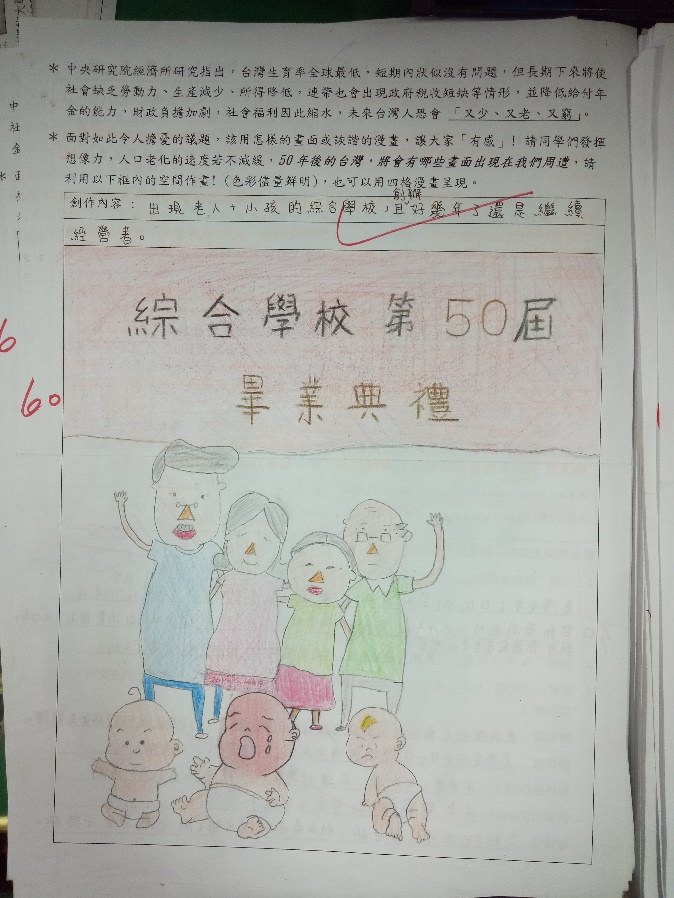 * 中央研究院經濟所研究指出，台灣生育率全球最低，短期內狀似沒有問題，但長期下來將使
社會缺乏勞動力、生產減少、所得降低，連帶也會出現政府稅收短缺等情形，並降低給付年
金的能力，財政負擔加劇，社會福利因此縮水，未來台灣人恐會「又少、又老、又窮」。
* 面對如此令人擔憂的議題，該用怎樣的畫面或詼諧的漫畫，讓大家「有感」！請同學們發揮
想像力，人口老化的速度若不減緩，50 年後的台灣，將會有哪些畫面出現在我們周遭，請
利用以下框內的空間作畫！(色彩儘量鮮明)，也可以用四格漫畫呈現。
創辦
創作內容：出現老人+小孩的綜合學校，且好幾年了還是繼續
經營著。
綜合學校第50屆
畢業典禮
60